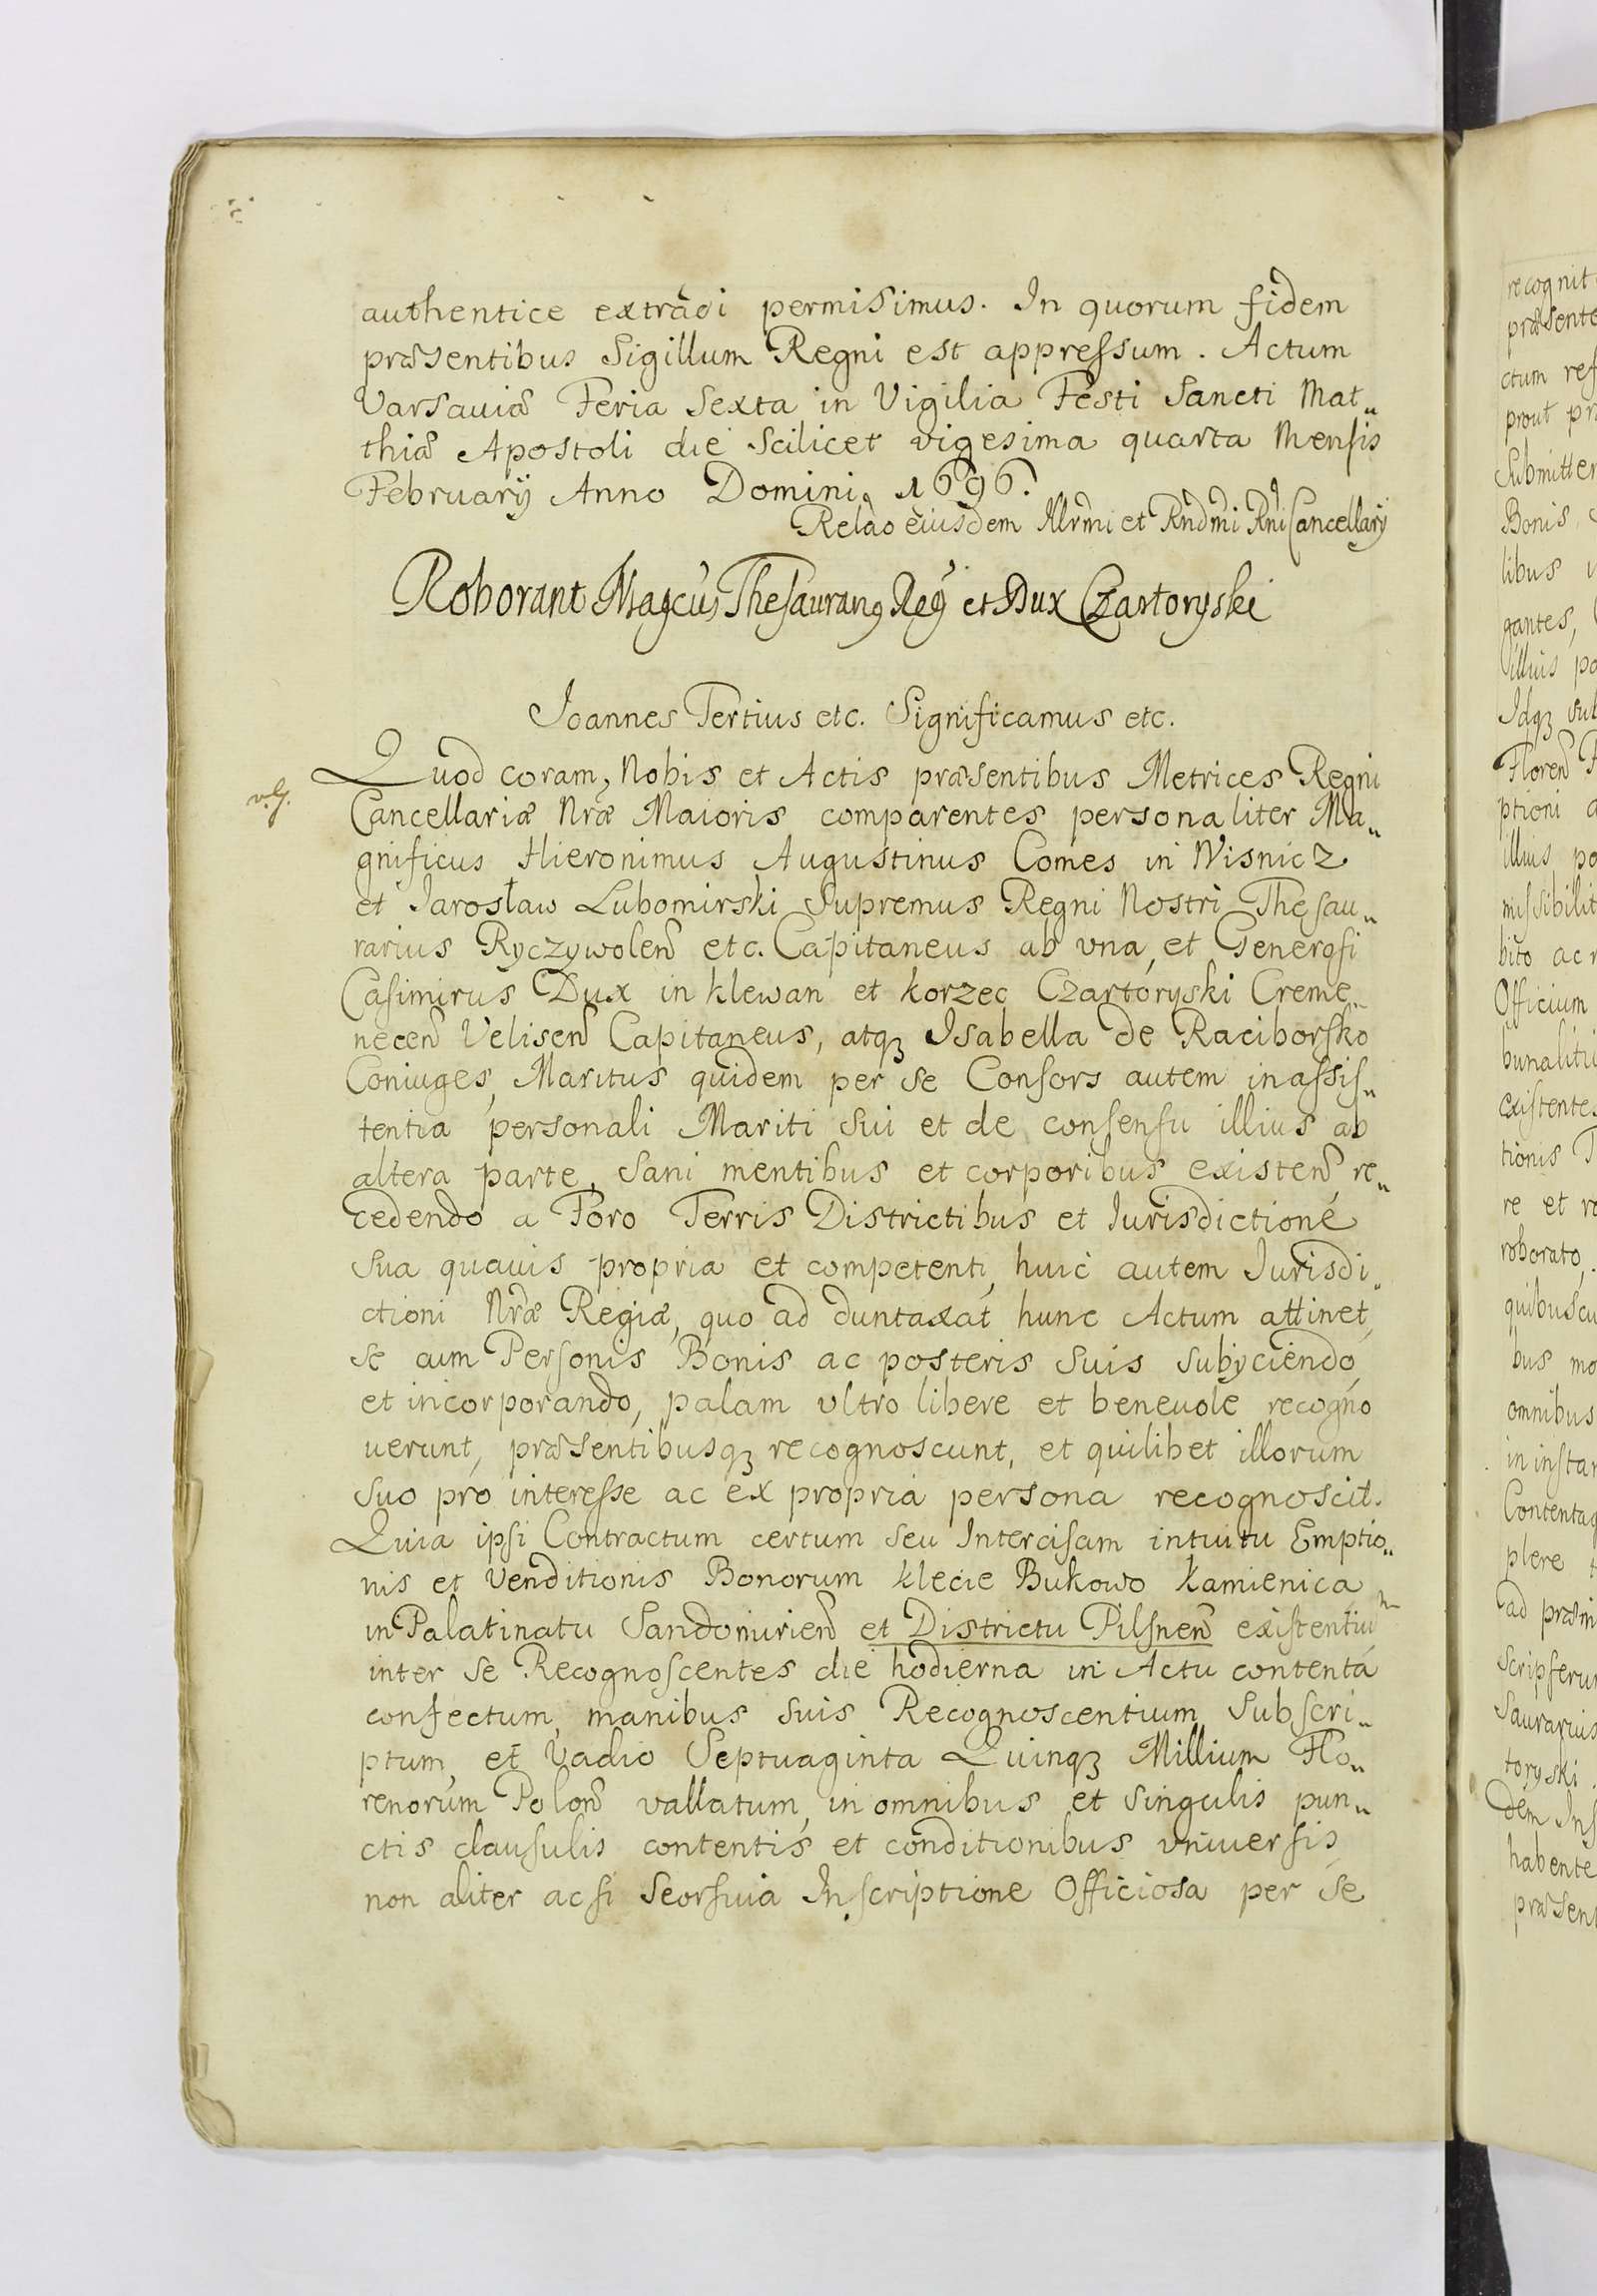 authentice extradi permisimus. In quorum fidem
præsentibus Sigillum Regni est appressum. Actum
Varsaviæ Feria Sexta in Vigilia Festi Sancti Mat„
thiæ Apostoli die scilicet vigesima quarta Mensis
Februarij Anno Domini 1696.
Relao eiusdem Illrmi et Rndmi Rni Cancellarij
Roborant Magcus Thesauranq Reg et Dux Czartoryski
Joannes Tertius etc. Significamus etc.
Quod coram Nobis et Actis præsentibus Metrices Regni
Cancellariæ Nræ Maioris comparentes personaliter Ma„
gnificus Hieronimus Augustinus Comes in Wisnicz
et Jarosław Lubomirski Supremus Regni Nostri Thesau„
rarius Ryczywolen etc. Capitaneus ab vna, et Generosi
Casimirus Dux in Klewan et Korzec Czartoryski Creme„
necen Velisen Capitaneus, atqꝫ Isabella de Raciborsko
Coniuges, Maritus quidem per se Consors autem in assis„
tentia personali Mariti sui et de consensu illius ab
altera parte, sani mentibus et corporibus existen re„
cedendo a Foro Terris Districtibus et Iurisdictione
sua quauis propria et competenti, huic autem Jurisdi„
ctioni Nræ Regiæ, quo ad duntaxat hunc Actum attinet,
se cum Personis Bonis ac posteris suis subijciendo,
et incorporando, palam vltro libere et beneuole recogno
uerunt, præsentibusqꝫ recognoscunt, et quilibet illorum
suo pro interesse ac ex propria persona recognoscit.
Quia ipsi Contractum certum seu Intercisam intuitu Emptio„
nis et Venditionis Bonorum Klecie Bukowo Kamienica
in Palatinatu Sandomirien et Districtu Pilsnen existentium
inter se Recognoscentes die hodierna in Actu contenta
confectum, manibus suis Recognoscentium subscri„
ptum, et Vadio Septuaginta Quinqꝫ Millium Flo„
renorum Polon vallatum, in omnibus et singulis pun„
ctis clausulis contentis et conditionibus vniuersis,
non aliter ac si Seorsiuia Inscriptione Officiosa per se
recognit
præsente
ctum
prout
Submitter
Bonis
libus
gantes,
illius po
Idqꝫ sub
Floren
ptioni
illius po
missibilit
bito ac
Officium
existente
tionis
re et
roborato,
quibuscu
bus mo
omnibus
in instan
plere
scripserun
saurarius
toryski
dem Ins
habente
præsen